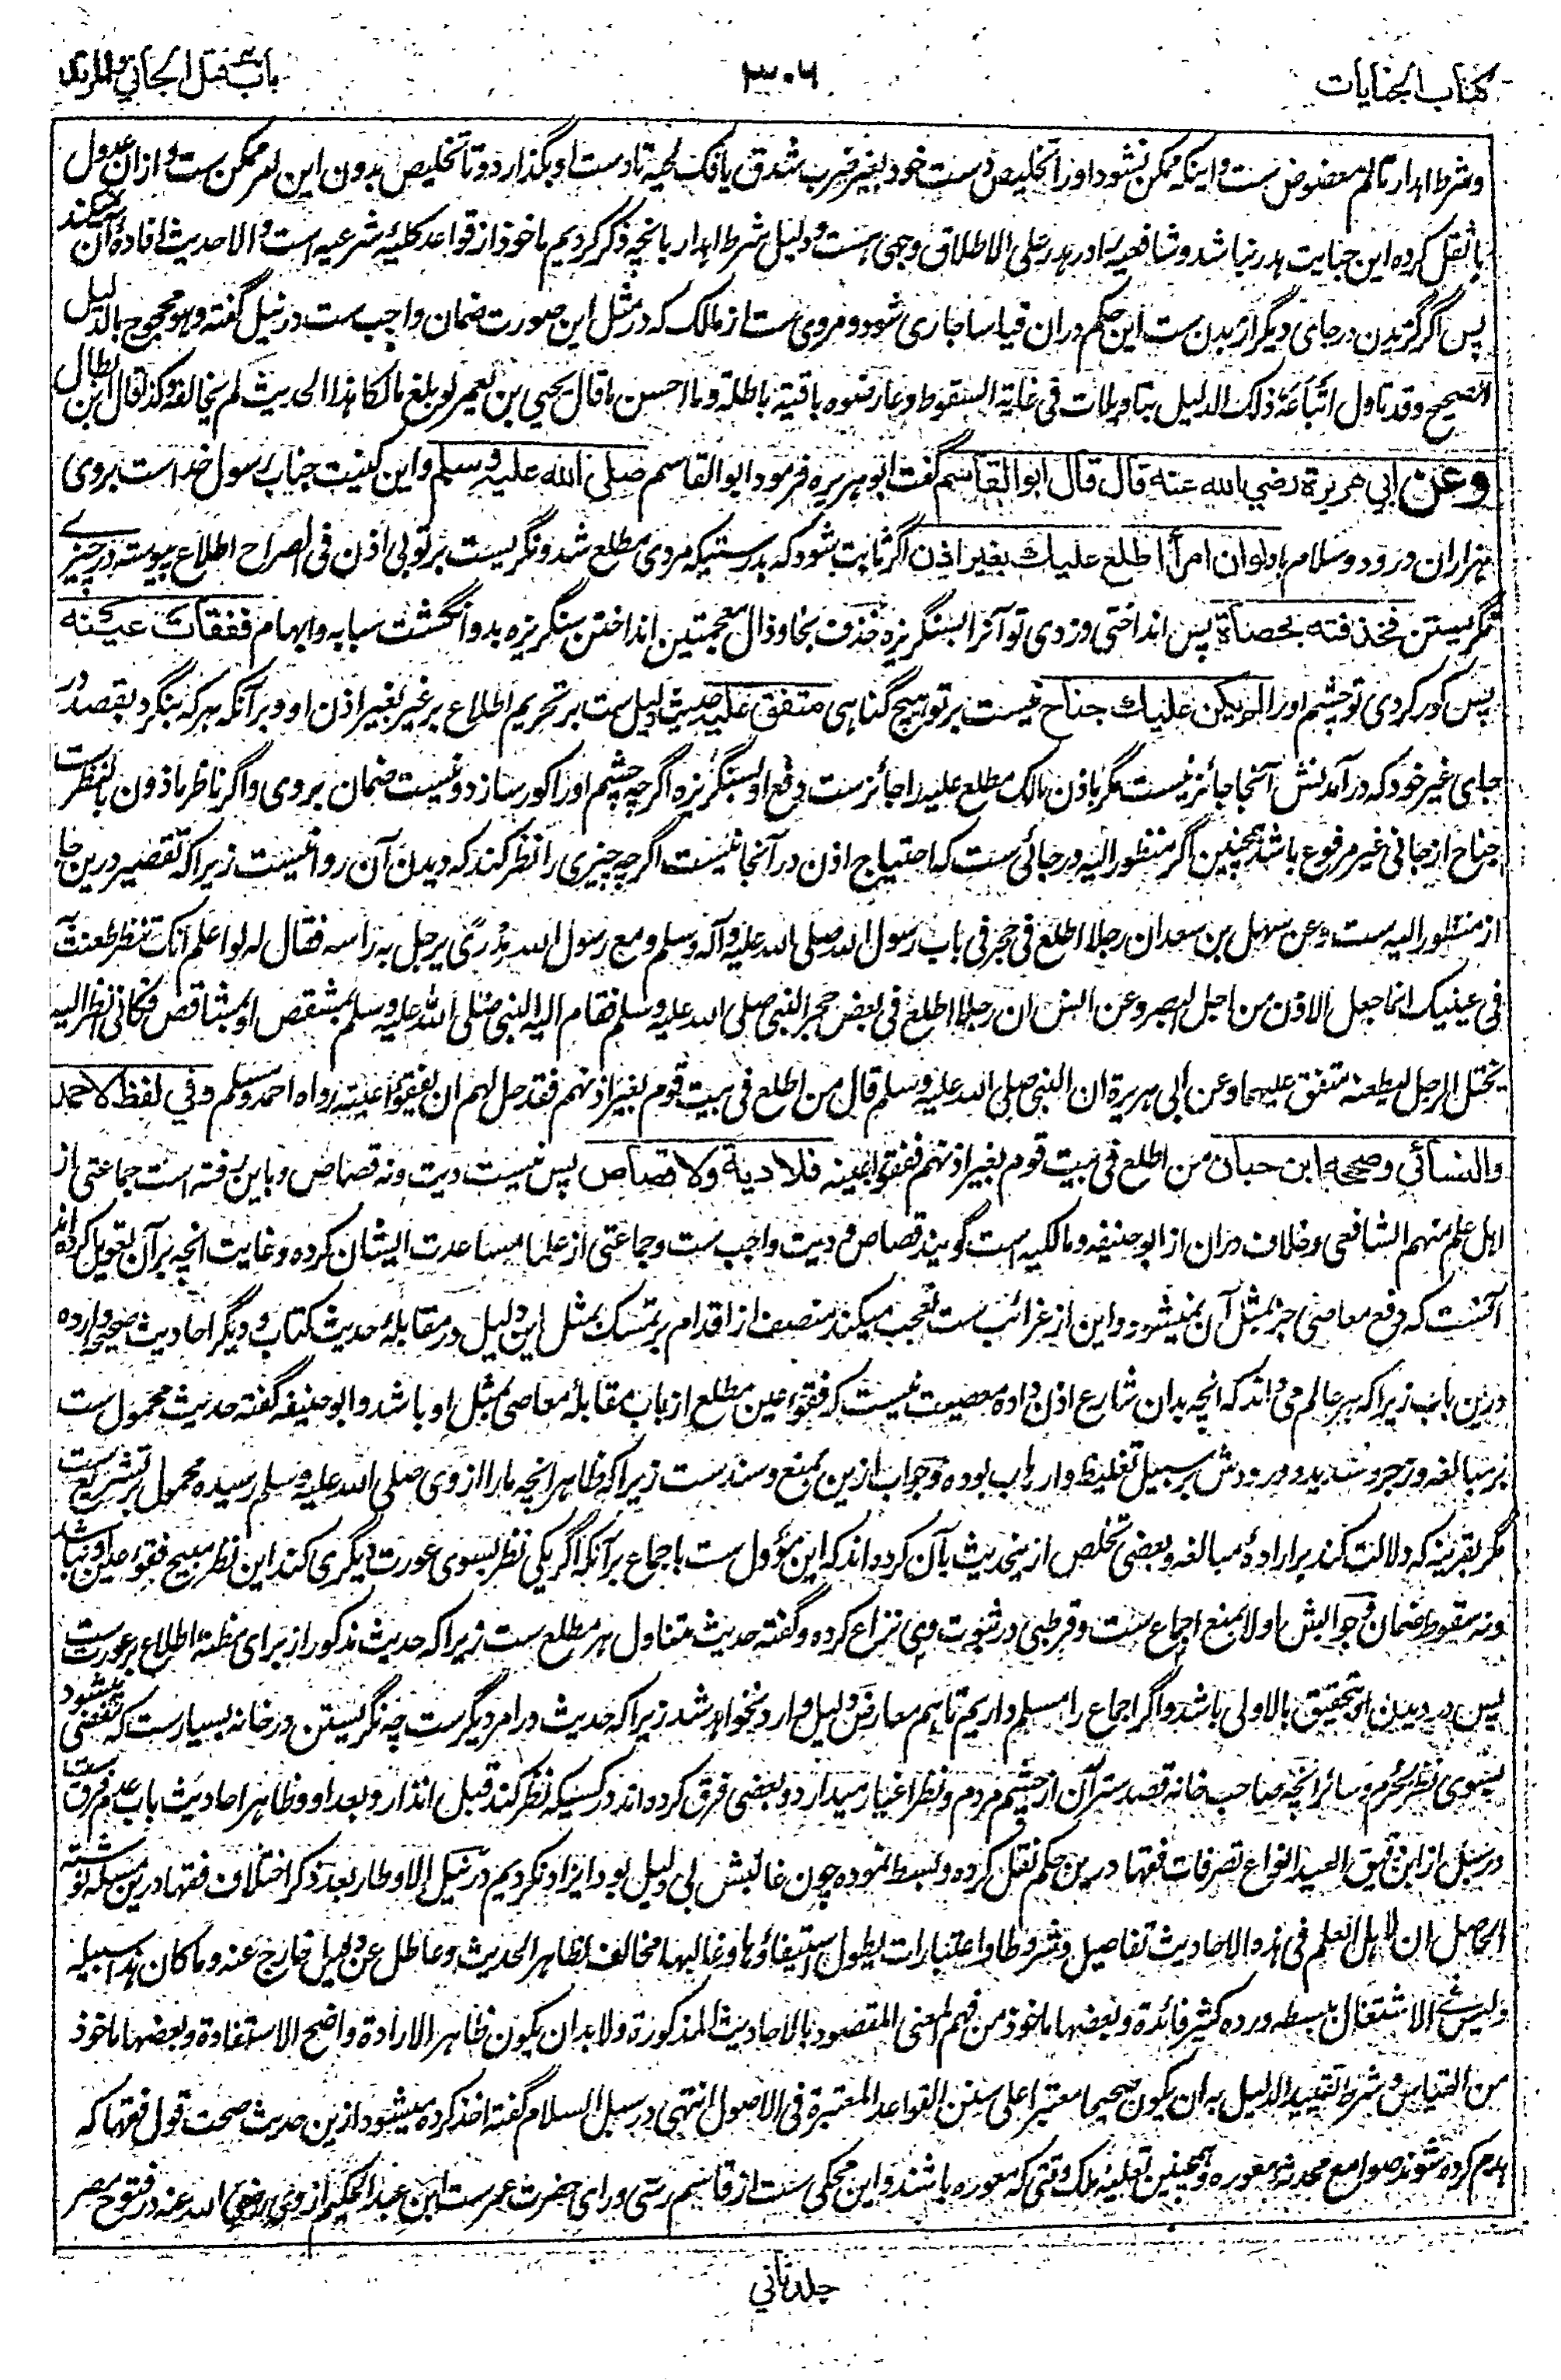 کتاب الجنایات
۳۰۶
باب قتل الجاني والمرتد
وشرط اهدار تالم معضوض ست واینکه ممکن نشود اورا تخلیص دست خود بغیر ضرب شدق یا فک لحیه تا دست او بگذارد و تا تخلیص بدون این امر ممکن ست و از ان عدول
باثقل کرده این جنایت هدر نباشد و شافعیه را در هدر علی الاطلاق وجهی هست و دلیل شرط اهدار بانچه ذکر کردیم ماخوذ از قواعد کلیهٔ شرعیه است والا حدیث افادهٔ آن نمیکند
پس اگر گزیدن در جای دیگر از بدن ست این حکم دران قیاسا جاری شود و مروی ست از مالک که در مثل این صورت ضمان واجب ست در نیل گفته وهو محجوج بالدلیل
الصحیح وقد تاول اتباعه ذلک الدلیل بتاویلات فی غایة السقوط وعارضوه باقیته باطلة وما احسن ما قال یحیی بن یعمر لو بلغ مالکا هذا الحدیث لم یخالفه کذا قال ابن بطال
وعن ابي هريرة رضي الله عنه قال قال ابو القاسم گفت ابوهریره فرمود ابوالقاسم صلی الله علیه وسلم و این کنیت جناب رسول خداست بروی
هزاران درود و سلام باد لو ان امرأ اطلع عليك بغير اذن اگر ثابت شود که بدرستیکه مردی مطلع شد و نگریست بر تو بی اذن فی الصراح اطلاع پیوسته در چیزے
نگریستن فخذفته بحصاة پس انداختی و زدی تو آنرا بسنگریزه خذف بخا و ذال معجمتین انداختن سنگریزه بدو انگشت سبابه و ابهام ففقأت عينه
پس کور کردی تو چشم اورا لم يكن عليك جناح نیست بر تو هیچ گناهی متفق عليه حدیث دلیل ست بر تحریم اطلاع بر غیر بغیر اذن او و برآنکه هرکه بنگرد بقصد در
جای غیر خود که در آمدنش آنجا جائز نیست مگر باذن مالک مطلع علیه را جائز ست دفع او بسنگریزه اگرچه چشم اورا کور سازد و نیست ضمان بروی و اگر ناظر ماذون بالنظر ست
جناح از جانی غیر مرفوع باشد همچنین اگر منظور الیه در جائی ست که احتیاج اذن در آنجا نیست اگرچه چیزی را نظر کند که دیدن آن روا نیست زیرا که تقصیر درین جا
از منظور الیه ست وعن سهل بن سعد ان رجلا اطلع فی جحر فی باب رسول الله صلی الله علیه وآله وسلم ومع رسول الله مدری یرجل به راسه فقال له لو اعلم انک تنظر طعنت به
فی عینیک انما جعل الاذن من اجل البصر وعن انس ان رجلا اطلع فی بعض حجر النبی صلی الله علیه وسلم فقام الیه النبی صلی الله علیه وسلم بمشقص او بمشاقص فکانی انظر الیه
یختل الرجل لیطعنه متفق علیهما وعن ابی هریرة ان النبی صلی الله علیه وسلم قال من اطلع فی بیت قوم بغیر اذنهم فقد حل لهم ان یفقؤا عینه رواه احمد ومسلم وفي لفظ لاحمد
والنسائي وصححه ابن حبان من اطلع فی بیت قوم بغیر اذنهم ففقؤا عینه فلا دية ولا قصاص پس نیست دیت و نه قصاص و باین رفته است جماعتی از
اهل علم منهم الشافعی و خلاف دران از ابوحنیفه و مالکیه است گویند قصاص و دیت واجب ست و جماعتی از علما مساعدت ایشان کرده و غایت انچه برآن تعویل کرده اند
آنست که دفع معاصی جز بمثل آن نمیشود و این از غرائب ست تعجب میکند منصف از اقدام بر تمسک بمثل این دلیل در مقابلهٔ حدیث کتاب و دیگر احادیث صحیحه وارده
درین باب زیرا که هر عالم می داند که انچه بدان شارع اذن داده معصیت نیست که فقوء عین مطلع از باب مقابلهٔ معاصی بمثل او باشد و ابوحنیفه گفته حدیث محمول ست
بر مبالغه و زجر و شدید و ورودش بر سبیل تغلیظ و ارهاب بوده و جواب ازین بمنع و سند ست زیرا که ظاهر انچه مارا از وی صلی الله علیه وسلم رسیده محمول بر تشریع ست
مگر بقرینه که دلالت کند بر ارادهٔ مبالغه و بعضی تخلص از ینحدیث بآن کرده اند که این مؤول ست باجماع برآنکه اگر یکی نظر بسوی عورت دیگری کند این نظر مبیح فقوء عین او نباشد
ونه سقوط ضمان و جوابش اولا بمنع اجماع ست و قرطبی در ثبوت وی نزاع کرده و گفته حدیث متناول هر مطلع ست زیرا که حدیث مذکور از برای مظنهٔ اطلاع بر عورت ست
پس در دیدن او بتحقیق بالاولی باشد و اگر اجماع را مسلم داریم تاهم معارض دلیل وارد نخواهد شد زیرا که حدیث در امر دیگر ست چه نگریستن در خانه بسیار ست که مفضی میشود
بسوی نظر بحرم و سائر انچه صاحب خانه قصد ستر آن از چشم مردم و نظر اغیار میدارد و بعضی فرق کرده اند در کسیکه نظر کند قبل انذار و بعد او و ظاهر احادیث باب عدم فرق ست
در سبل از ابن دقیق العید انواع تصرفات فقها درین حکم نقل کرده و بسط نموده چون غالبش بی دلیل بود ایراد نکردیم در نیل الاوطار بعد ذکر اختلاف فقها درین مسئله نوشته
الحاصل ان لاهل العلم فی هذه الاحادیث تفاصیل وشروطا واعتبارات یطول استیفاؤها وغالبها مخالف لظاهر الحدیث وعاطل عن دلیل خارج عنه وما کان هذا سبیله
ولیس فی الاشتغال ببسطه ورده کثیر فائدة وبعضها ماخوذ من فهم المعنی المقصود بالاحادیث المذکورة ولا بد ان یکون ظاهر الارادة واضح الاستفادة وبعضها ماخوذ
من القیاس وشرط تقیید الدلیل به ان یکون صحیحا معتبرا علی سنن القواعد المعتبرة فی الاصول انتهی در سبل السلام گفته اخذ کرده میشود ازین حدیث صحت قول فقها که
هدم کرده شوند صوامع محدثهٔ معوره و همچنین تعلیهٔ ملک وقتی که معوره باشند و این محکی ست از قاسم رسی و رای حضرت عمر ست ابن عبد الحکیم از وی رضی الله عنه در فتوح مصر
جلد ثاني